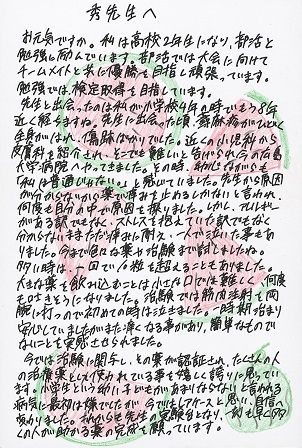 秀先生へ
お元気ですか。私は高校2年生になり、部活と
勉強に励んでいます。部活では大会に向けて
チームメイトと共に優勝を目指し頑張っています。
勉強では、検定取得を目指しています。
先生と出会ったのは私が小学校4年の時でもう8年
近く経ちますね。先生に出会った頃、蕁麻疹がひどく
全身がはれ、傷跡ばかりでした。近くの小児科から
皮膚科を紹介され、そこでも難しいと告げられ今の広島
大学病院へやってきました。その時、幼いながらも
「私は普通じゃない。」と感じていました。先生から原因
が分からないから薬で痒みを止めるしかないと言われ、
何度も自分の中で原因を探りました。しかし、アレルギー
がある訳でもなく、ストレスを抱えていた訳でもなく
分からないままただ痒みに耐え、一人で泣いた事もあ
りました。今まで色々な薬や治験まで試しましたね。
多い時は、一回で10粒を超えることもありました。
大きな薬を飲み込むことは小さな口では難しく、何度
も吐きそうになりました。治験では筋肉注射を両
腕に打つので初めての時は泣きました。一時期治まり
安心していましたがまた痒くなる事があり、簡単なもので
ないことも実感させられました。
今では治験に関与し、その薬が認証され、たくさんの人
の治療薬として使われている事を嬉しく誇りに思ってい
ます。小学生という幼い子どもがあまりならないと言われる
病気に最初は嫌でしたが、今ではレアケースと思い、自信へ
変わりました。これからも先生の実験台となり、一刻も早く多
くの人が助かる薬の完成を願っています。